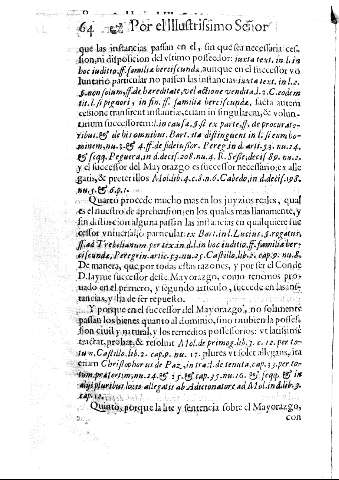 64 Por el Illustrissimo Señor
que las instancias passan en el, sin que sea necessaria ces-
sion, ni disposicion del vltimo posseedor: iuxta text. in l. in
hoc iuditio, ff. familiæ herciscundæ, aunque en el successor vo
luntario particular no passan las instancias iuxta text. in l. 2.
§. non solum, ff. de hæreditate, vel actione vendita, l. 2. C. eodem
tit. l. si pignori, in fin. ff. familiæ herciscundæ, facta autem
cessione transeunt instantiæ, etiam in singularem, & volun-
tarium successorem: l. in causæ, §. si ex parte, ff. de procurato-
ribus, & de his omnibus. Bart. ita distinguens in l. si eum ho-
minem, nu. 3. & 4. ff. de fideiussor. Pereg. in d. artic. 53. nu. 24.
& seqq. Peguera, in d. decis. 208. nu. 4. R. Sesse, decis. 89. nu. 2.
y el successor del Mayorazgo es successor necessario, ex alle
gatis, & præter illos Mol. lib. 4. c. 8. n. 6. Cabedo, in d. decis. 198.
nu. 5. & 6. p. 1.
Quarto procede mucho mas en los juyzios reales, qual
es el nuestro de aprehension, en los quales mas llanamente, y
sin distincion alguna passan las instancias en qualquiere suc
cessor vniuersal, o particular: ex Bart. in l. Lucius, §. rogatus,
ff. ad Trebellianum per tex. in d. l. in hoc iuditio, ff. familiæ her-
ciscundæ, Peregrin. artic. 53. nu. 25. Castillo, lib. 2. cap. 9. nu. 8.
De manera, que por todas estas razones, y por ser el Conde
D. Iayme successor deste Mayorazgo, como tenemos pro-
uado en el primero, y segundo articulo, sucede en las ins-
tancias, y ha de ser repuesto.
Y porque en el successor del Mayorazgo, no solamente
passan los bienes quanto al dominio, sino tambien la posses-
sion ciuil y natural, y los remedios possessorios: vt latissimè
tractat, probat, & resoluit Mol. de primog. lib. 3. c. 12. per to-
tum, Castillo, lib. 2. cap. 9. nu. 17. plures vt solet allegans, ita
etiam Christophorus de Paz, in tract. de tenuta, cap. 33. per to-
tum, præsertim, nu. 24. & 25. & cap. 35. nu. 16. & seqq. & in
alijs pluribus locis allegatis ab Additionatore ad Mol. in d. lib. 3.
cap. 12.
Quinto, porque la lite y sentencia sobre el Mayorazgo,
con